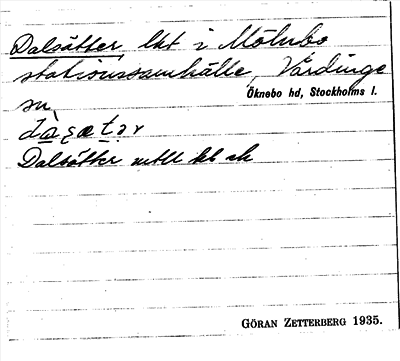 Dalsätter, lht i Mölnbo
stationssamhälle, Vårdinge
sn
Öknebo hd, Stockholms l.
Dalsätter
GÖRAN ZETTERBERG 1935.